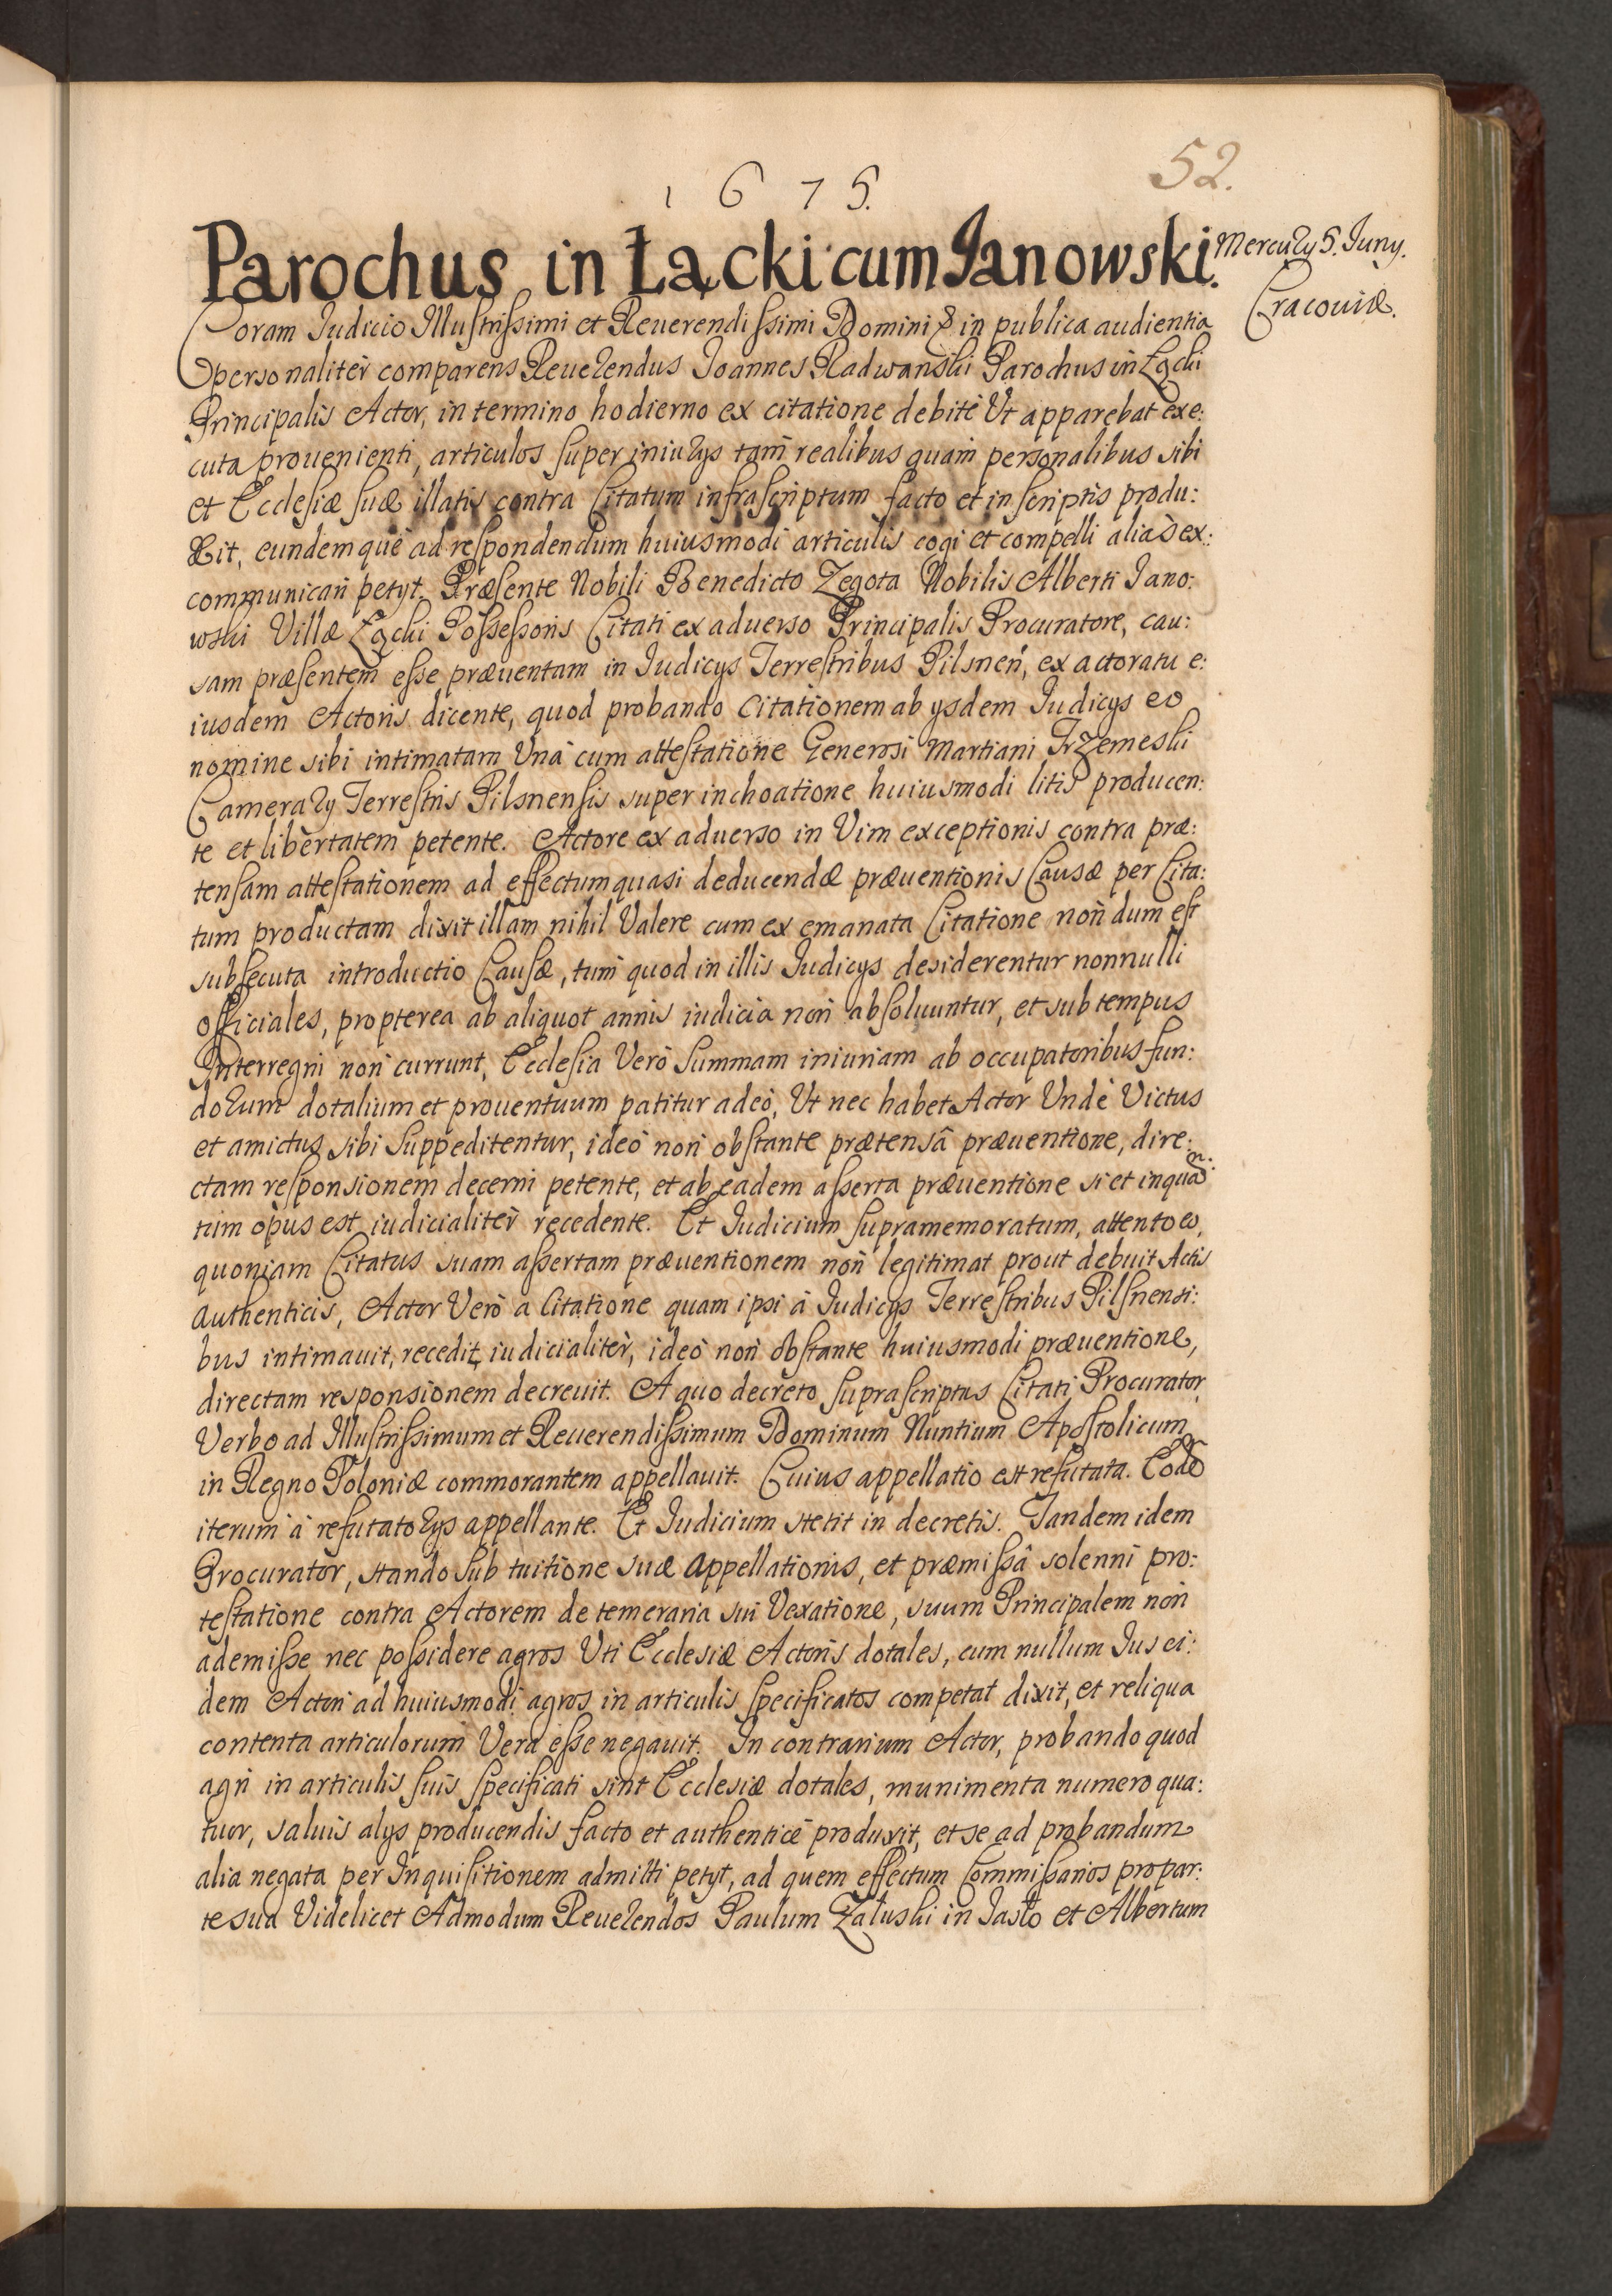 52.
1675.
Parochus in Łącki cum Janowski.
Mercurÿ 5. Junÿ.
Cracouiæ.
Coram Judicio Illustrissimi et Reuerendissimi Domini & in publica audientia
personalitèr comparens Reuerendus Joannes Radwanski Parochus in Łącki
Principalis Actor, in termino hodierno ex citatione debitè Vt apparebat exe:
cuta prouenienti, articulos super iniurÿs tam realibus quam personalibus sibi
et Ecclesiæ suæ illatis contra Citatum infrascriptum facto et in scriptis produ:
xit, eundemque ad respondendum huiusmodi articulis cogi et compelli aliàs ex:
communicari petÿt. Præsente Nobili Benedicto Zegota Nobilis Alberti Jano:
wski Villæ Łącki Possessoris Citati ex aduerso Principalis Procuratore, cau:
sam præsentem esse præuentam in Judicÿs Terrestribus Pilsnen, ex actoratu e:
iusdem Actoris dicente, quod probando Citationem ab ÿsdem Judicÿs eo
nomine sibi intimatam Vnà cum attestatione Generosi Martiani Trzemeski
Camerarÿ Terrestris Pilsnensis super inchoatione huiusmodi litis producen:
te et libertatem petente. Actore ex aduerso in Vim exceptionis contra præ:
tensam attestationem ad effectum quasi deducendæ præuentionis Causæ per Cita:
tum productam dixit illam nihil Valere cum ex emanata Citatione non dum est
subsecuta introductio Causæ, tum quod in illis Judicÿs desiderentur nonnulli
officiales, propterea ab aliquot annis iudicia non absoluuntur, et sub tempus
Interregni non currunt, Ecclesia Verò summam iniuriam ab occupatoribus fun:
dorum dotalium et prouentuum patitur adeò, Vt nec habet Actor Vndè Victus
et amictus sibi suppeditentur, ideò non obstante prætensâ præuentione, dire:
ctam responsionem decerni petente, et ab eadem asserta præuentione si et inquan:
tum opus est iudicialitèr recedente. Et Judicium supramemoratum, attento eo,
quoniam Citatus suam assertam præuentionem non legitimat prout debuit Actis
authenticis, Actor Verò a Citatione quam ipsi à Judicÿs Terrestribus Pilsnensi:
bus intimauit, recedit iudicialitèr, ideò non obstante huiusmodi præuentione,
directam responsionem decreuit. A quo decreto suprascriptus Citati Procurator
Verbo ad Illustrissimum et Reuerendissimum Dominum Nuntium Apostolicum
in Regno Poloniæ commorantem appellauit. Cuius appellatio est refutata. Eode
iterum à refutatorÿs appellante. Et Judicium stetit in decretis. Tandem idem
Procurator, stando sub tuitione suæ appellationis, et præmissâ solenni pro:
testatione contra Actorem de temeraria sui Vexatione, suum Principalem non
ademisse nec possidere agros Vti Ecclesiæ Actoris dotales, cum nullum Jus ei:
dem Actori ad huiusmodi agros in articulis specificatos competat dixit, et reliqua
contenta articulorum Vera esse negauit. In contrarium Actor, probando quod
agri in articulis suis specificati sint Ecclesiæ dotales, munimenta numero qua:
tuor, saluis alÿs producendis facto et authenticè produxit, et se ad probandum
alia negata per Inquisitionem admitti petÿt, ad quem effectum Commissarios pro par:
te sua Videlicet Admodum Reuerendos Paulum Załuski in Jasło et Albertum